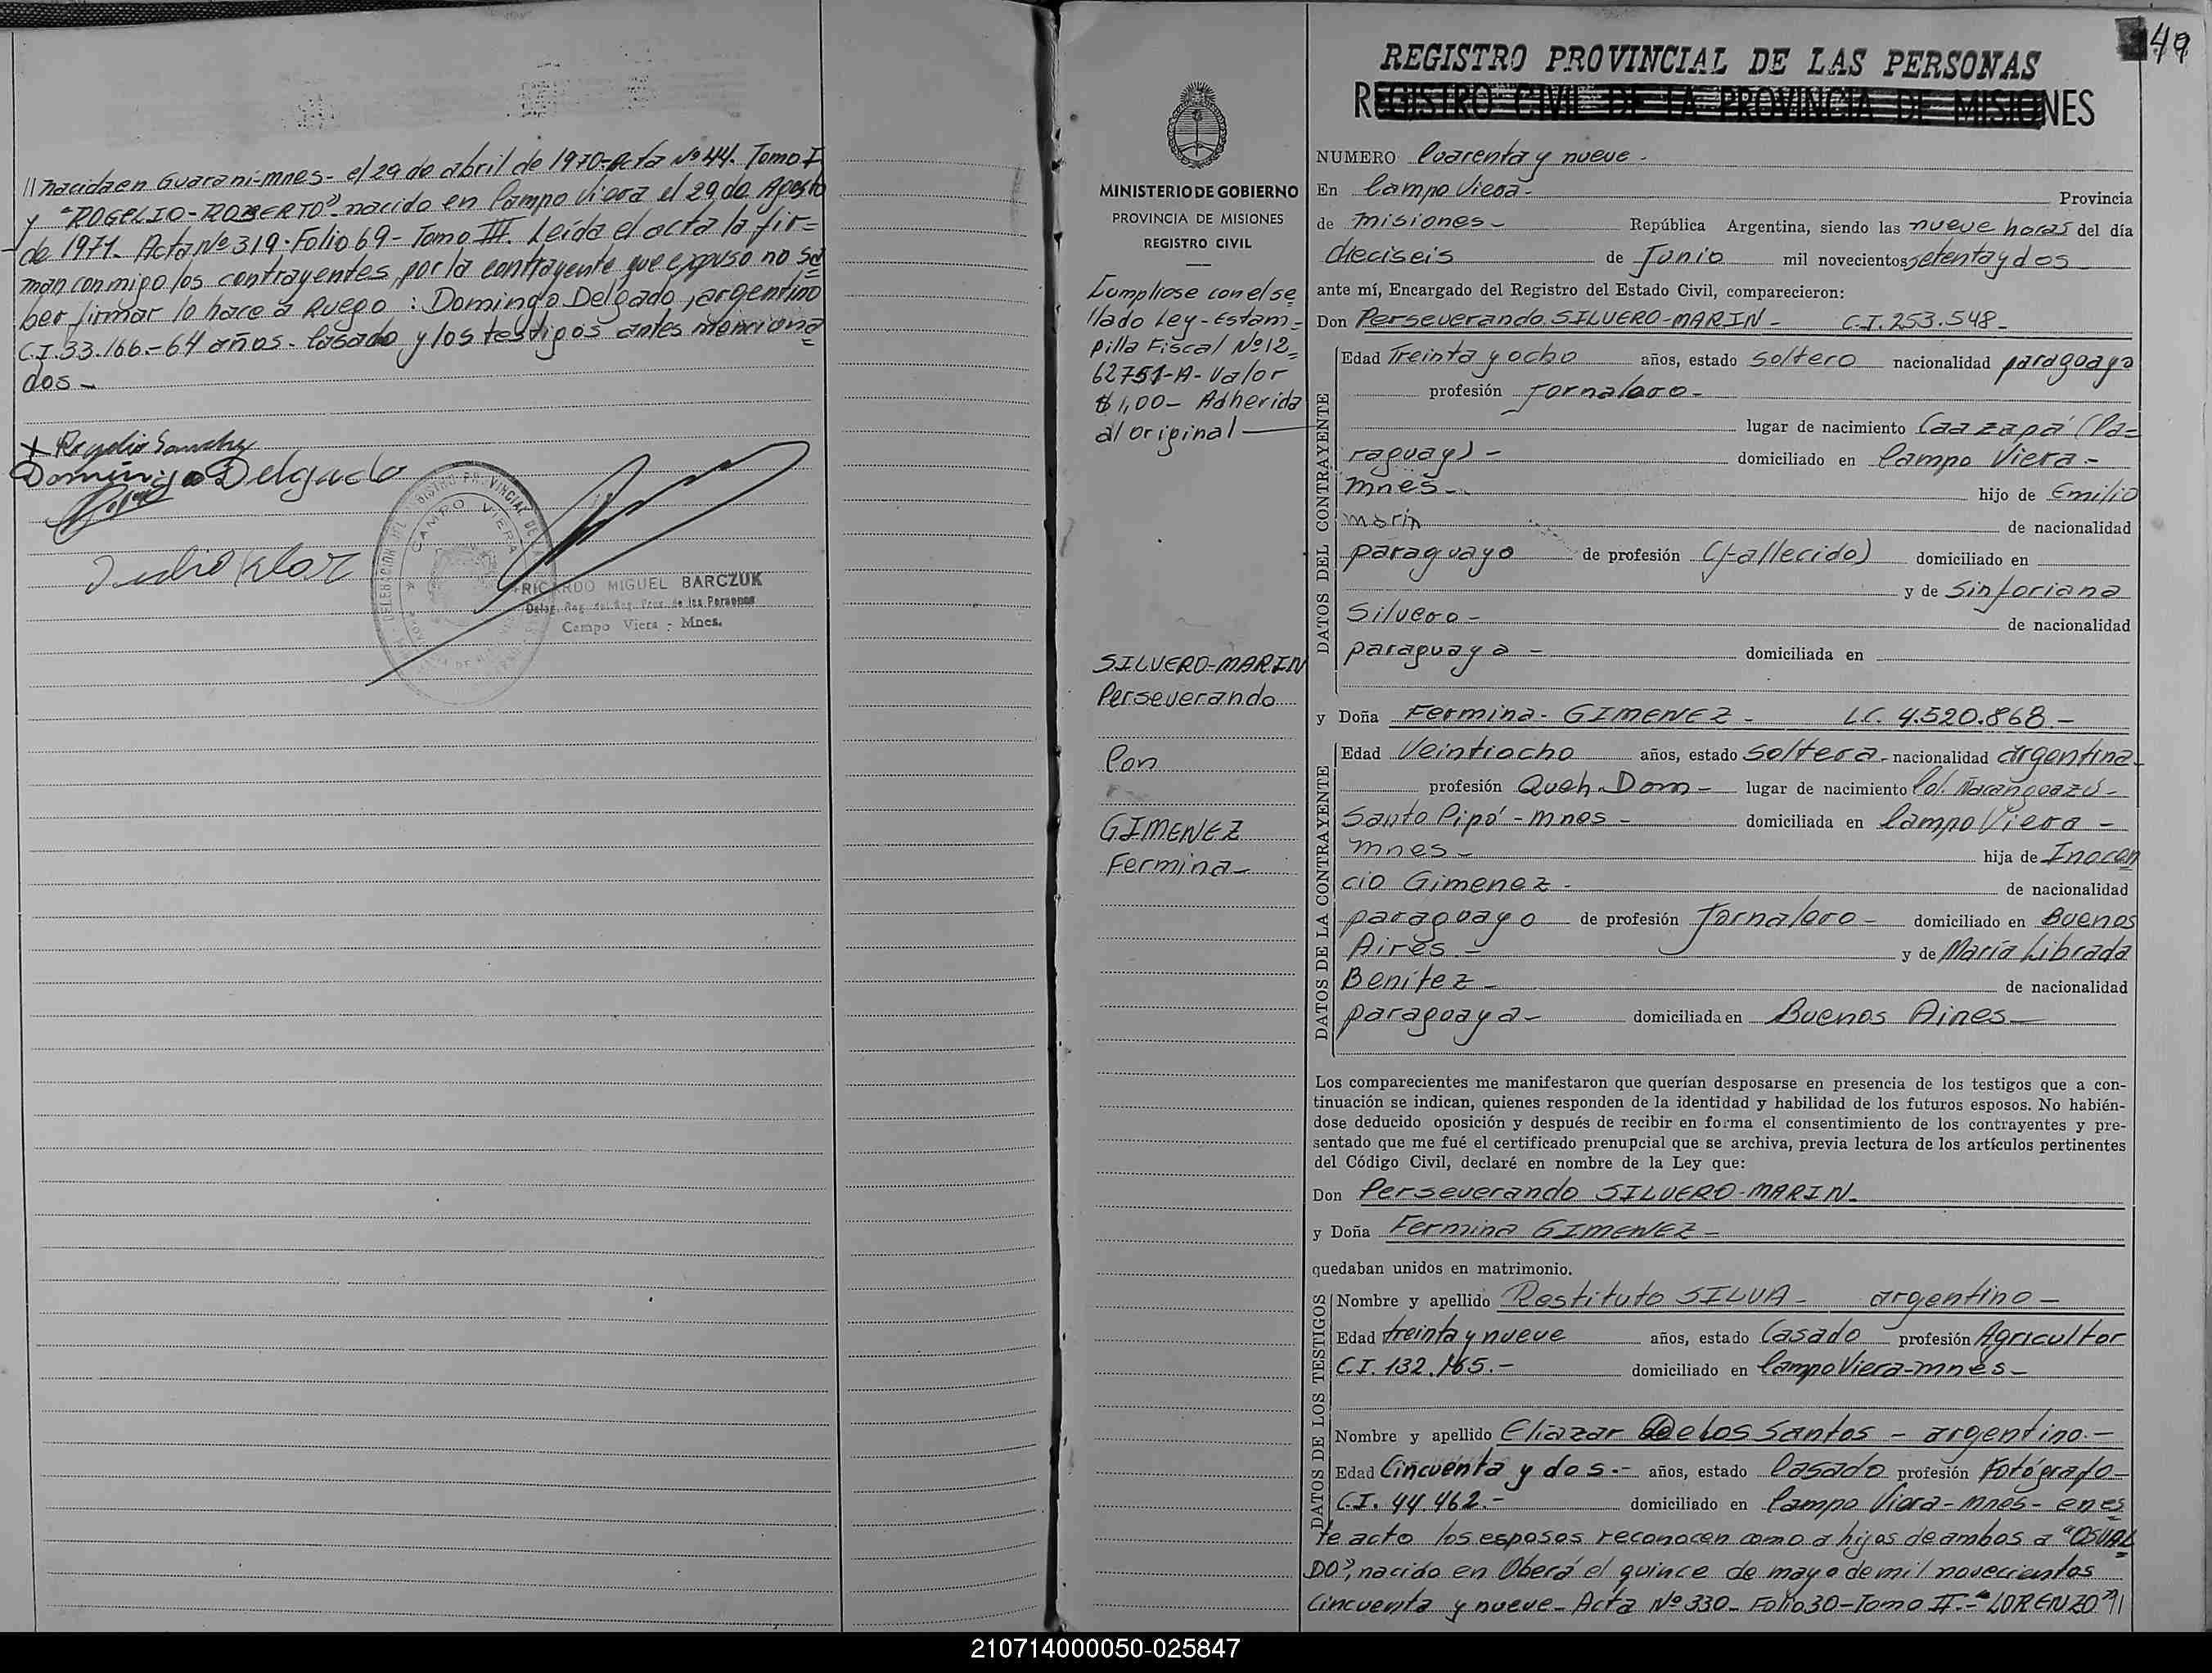 // nacida en Guaraní-mnes- el 29 de abril de 1970- Acta Nº 44. Tomo I
y "ROGELIO-ROBERTO" nacido en Campo Viera el 29 de Agosto
de 1971. Acta Nº 319. Folio 69- Tomo III. Leída el acta la fir=
man conmigo los contrayentes, por la contrayente que expuso no sa
ber firmar lo hace a Ruego: Domingo Delgado, argentino
C.I. 33.166.- 64 años. Casado y los testigos antes menciona=
dos-
x Rogelio Sanchez
Domingo Delgado
DELEGACION DEL REGISTRO PROVINCIAL DE LA
CAMPO VIERA
RICARDO MIGUEL BARCZUK
Deleg. Reg. del Reg. Prov. de las Personas
Campo Viera - Mnes.
49
REGISTRO PROVINCIAL DE LAS PERSONAS
REGISTRO CIVIL DE LA PROVINCIA DE MISIONES
MINISTERIO DE GOBIERNO
PROVINCIA DE MISIONES
REGISTRO CIVIL
Cumpliose con el se
llado Ley-Estam=
pilla Fiscal Nº 12=
62751-A-Valor
$ 1,00- Adherida
al original
SILVERO-MARIN
Perseverando
Con
GIMENEZ
Fermina-
NUMERO Cuarenta y nueve-
En Campo Viera- Provincia
de misiones- República Argentina, siendo las nueve horas del día
dieciseis de Junio mil novecientos setenta y dos
ante mí, Encargado del Registro del Estado Civil, comparecieron:
Don Perseverando SILVERO-MARIN- C.I. 253.548-
DATOS DEL CONTRAYENTE
Edad Treinta y ocho años, estado soltero nacionalidad paraguaya
profesión Jornalero-
lugar de nacimiento Caazapá (Pa=
raguay)- domiciliado en Campo Viera-
mnes- hijo de Emilio
marin de nacionalidad
paraguayo de profesión (fallecido) domiciliado en
y de Sinforiana
Silvero- de nacionalidad
paraguaya- domiciliada en
y Doña Fermina- GIMENEZ- L.C. 4.520.868-
DATOS DE LA CONTRAYENTE
Edad Veintiocho años, estado soltera- nacionalidad argentina-
profesión Queh. Dom- lugar de nacimiento Col. Ñacanguazú-
Santo Pipó-mnes- domiciliada en Campo Viera-
mnes- hija de Inocen
cio Gimenez- de nacionalidad
paraguayo de profesión Jornalero- domiciliado en Buenos
Aires- y de María Librada
Benitez- de nacionalidad
paraguaya- domiciliada en Buenos Aires-
Los comparecientes me manifestaron que querían desposarse en presencia de los testigos que a con-
tinuación se indican, quienes responden de la identidad y habilidad de los futuros esposos. No habién-
dose deducido oposición y después de recibir en forma el consentimiento de los contrayentes y pre-
sentado que me fué el certificado prenupcial que se archiva, previa lectura de los artículos pertinentes
del Código Civil, declaré en nombre de la Ley que:
Don Perseverando SILVERO-MARIN-
y Doña Fermina GIMENEZ-
quedaban unidos en matrimonio.
DATOS DE LOS TESTIGOS
Nombre y apellido Restituto SILVA- argentino-
Edad treinta y nueve años, estado Casado profesión Agricultor
C.I. 132.165.- domiciliado en Campo Viera-mnes-
Nombre y apellido Eliazar De los Santos- argentino-
Edad Cincuenta y dos.- años, estado Casado profesión Fotógrafo-
C.I. 44.462.- domiciliado en Campo Viera-mnes- en es=
te acto los esposos reconocen como a hijos de ambos a "OSVAL=
DO", nacido en Oberá el quince de mayo de mil novecientos
Cincuenta y nueve- Acta Nº 330- Folio 30-Tomo II.-"LORENZO" //
210714000050-025847